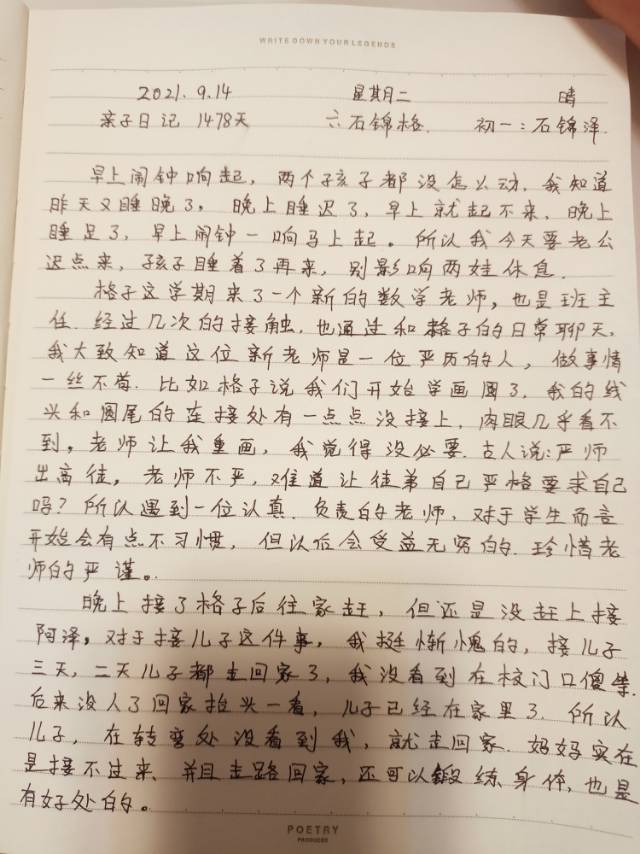 WRITE DOWN YOUR LEGENDS
2021.9.14 星期二 晴
亲子日记 1478天 六石锦格. 初一:石锦泽.
早上闹钟响起,两个孩子都没怎么动,我知道
昨天又睡晚了,晚上睡迟了,早上就起不来.晚上
睡足了,早上闹钟一响马上起。所以我今天要老公
迟点来,孩子睡着了再来,别影响两娃休息.
格子这学期来了一个新的数学老师,也是班主
任.经过几次的接触,也通过和格子的日常聊天,
我大致知道这位新老师是一位严历的人,做事情
一丝不苟.比如格子说我们开始学画圆了,我的线
头和圆尾的连接处有一点点没接上,肉眼几乎看不
到,老师让我重画,我觉得没必要.古人说:严师
出高徒,老师不严,难道让徒弟自己严格要求自己
吗?所以遇到一位认真.负责的老师,对于学生而言
开始会有点不习惯,但以后会受益无穷的.珍惜老
师的严谨。
晚上接了格子后往家赶,但还是没赶上接
阿泽,对于接儿子这件事,我挺惭愧的,接儿子
三天,二天儿子都走回家了,我没看到在校门口傻等.
后来没人了回家抬头一看,儿子已经在家里了.所以
儿子,在转弯处没看到我,就走回家.妈妈实在
是接不过来.并且走路回家,还可以锻练身体,也是
有好处的。
POETRY
PRODUCED